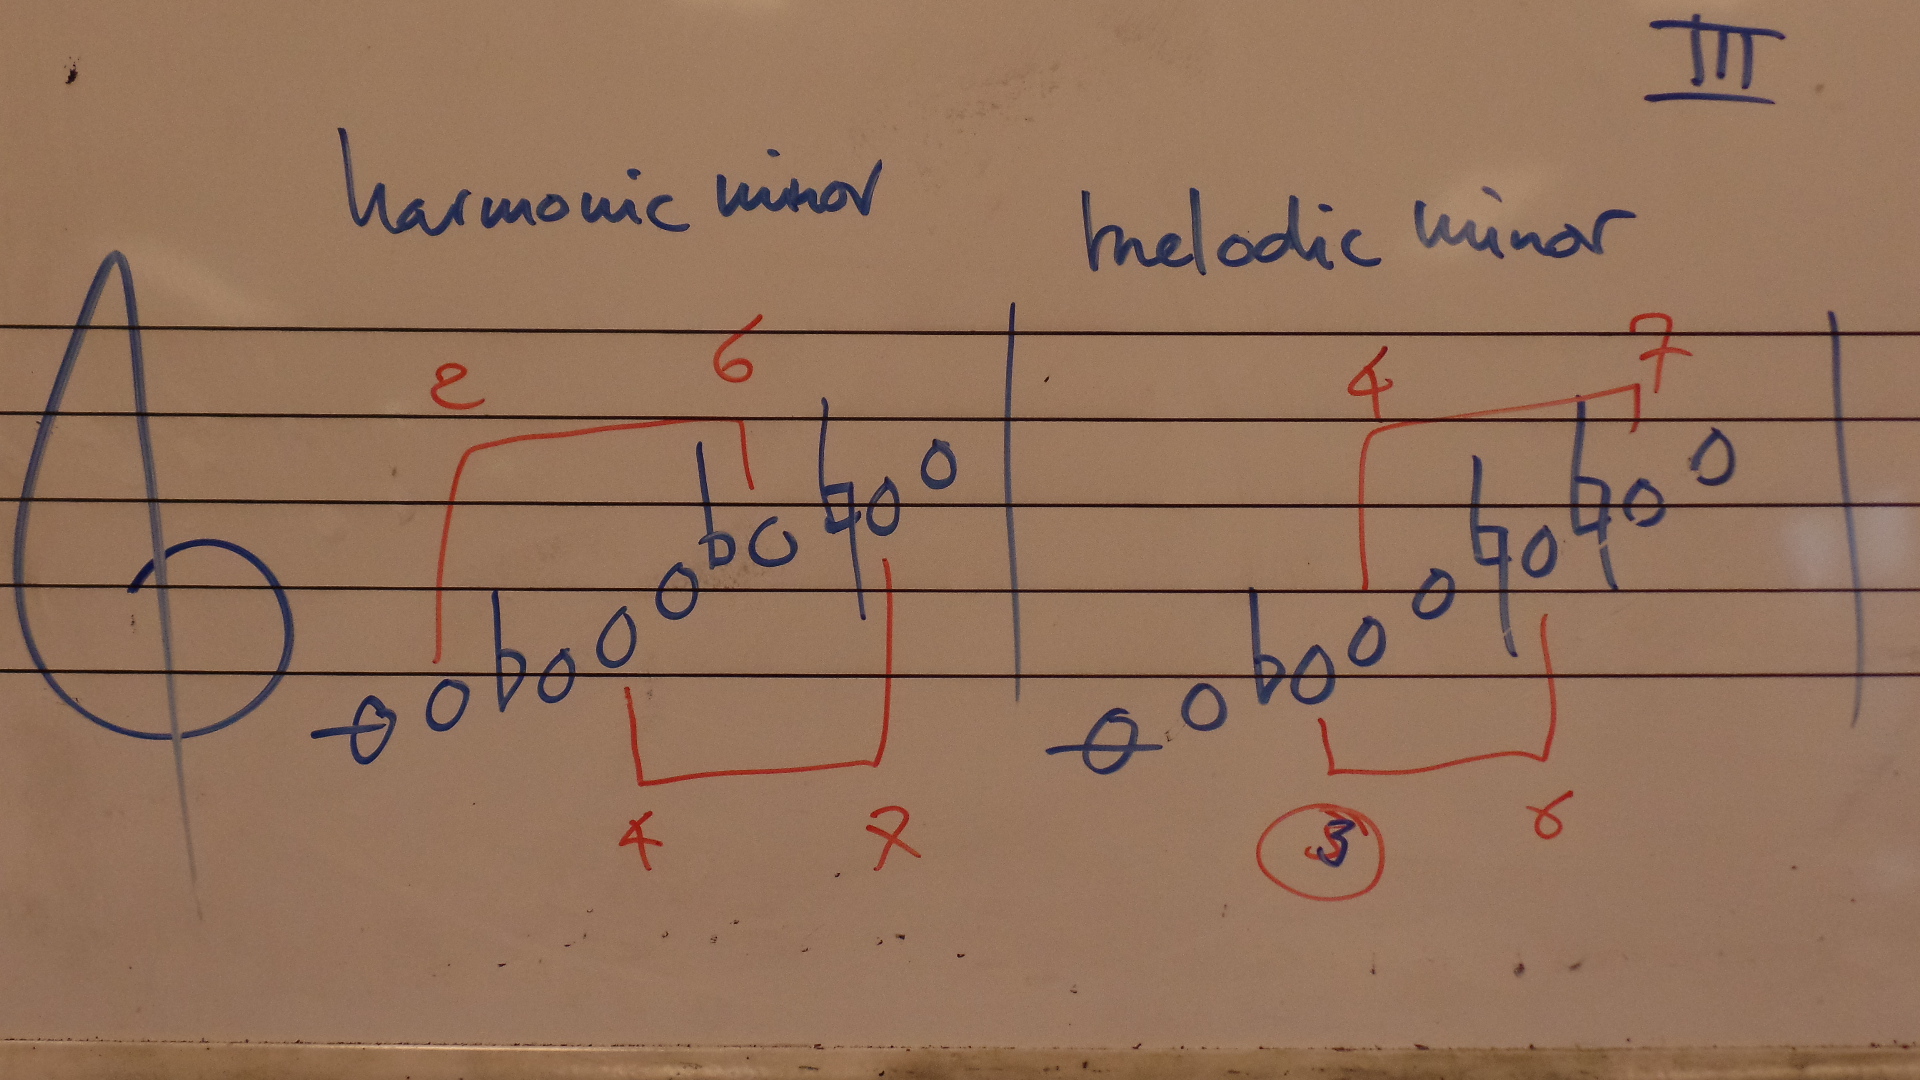 III
harmonic minor melodic minor
2 6 4 7
4 7 3 6